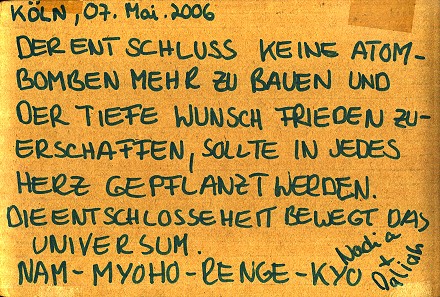 KÖLN, 07. Mai. 2006
DER ENTSCHLUSS KEINE ATOM-
BOMBEN MEHR ZU BAUEN UND
DER TIEFE WUNSCH FRIEDEN ZU-
ERSCHAFFEN, SOLLTE IN JEDES
HERZ GEPFLANZT WERDEN.
DIE ENTSCHLOSSEHEIT BEWEGT DAS
UNIVERSUM.
NAM-MYOHO-RENGE-KYO
Nadia
+